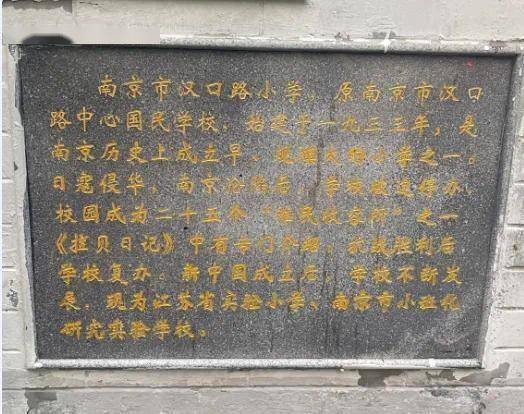 南京市汉口路小学，原南京市汉口
路中心国民学校，始建于一九三三年，是
南京历史上成立早、规模大的小学之一。
日寇侵华，南京沦陷后，学校被迫停办，
校园成为二十五个“难民收容所”之一
《拉贝日记》中有专门介绍。抗战胜利后
学校复办。新中国成立后，学校不断发
展，现为江苏省实验小学、南京市小班化
研究实验学校。